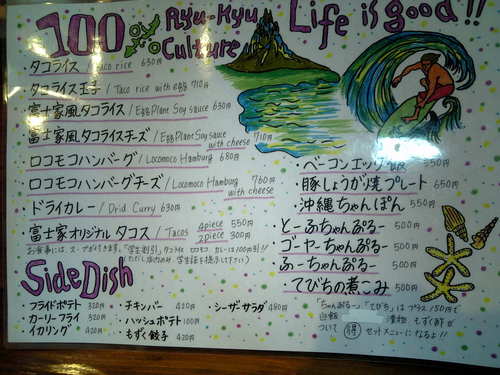 100
Ryu-Kyu Culture
Life is good!!
タコライス / Taco rice 630円
タコライス玉子 / Taco rice with egg 710円
富士家風タコライス / Egg Plant Soy sauce 630円
富士家風タコライスチーズ / Egg Plant Soy sauce with cheese 710円
ロコモコハンバーグ / Locomoco Hamburg 680円
ロコモコハンバーグチーズ / Locomoco Hamburg with cheese 760円
ドライカレー / Drid Curry 630円
富士家オリジナル タコス / Tacos 4piece 550円
2piece 300円
お食事には、スープが付きます。
ベーコンエッグ 550円
豚しょうが焼プレート 650円
沖縄ちゃんぽん 550円
とーふちゃんぷるー 500円
ゴーヤーちゃんぷるー 500円
ふーちゃんぷるー 500円
てびちの煮こみ 500円
「ちゃんぷるー」「てびち」は プラス150円で
もずく酢が
ついて 得 セットメニューになるよ!!
Side Dish
フライドポテト 320円
カーリーフライ 320円
イカリング 420円
チキンバー 420円
ハッシュポテト 100円
もずく餃子 420円
シーザーサラダ 480円